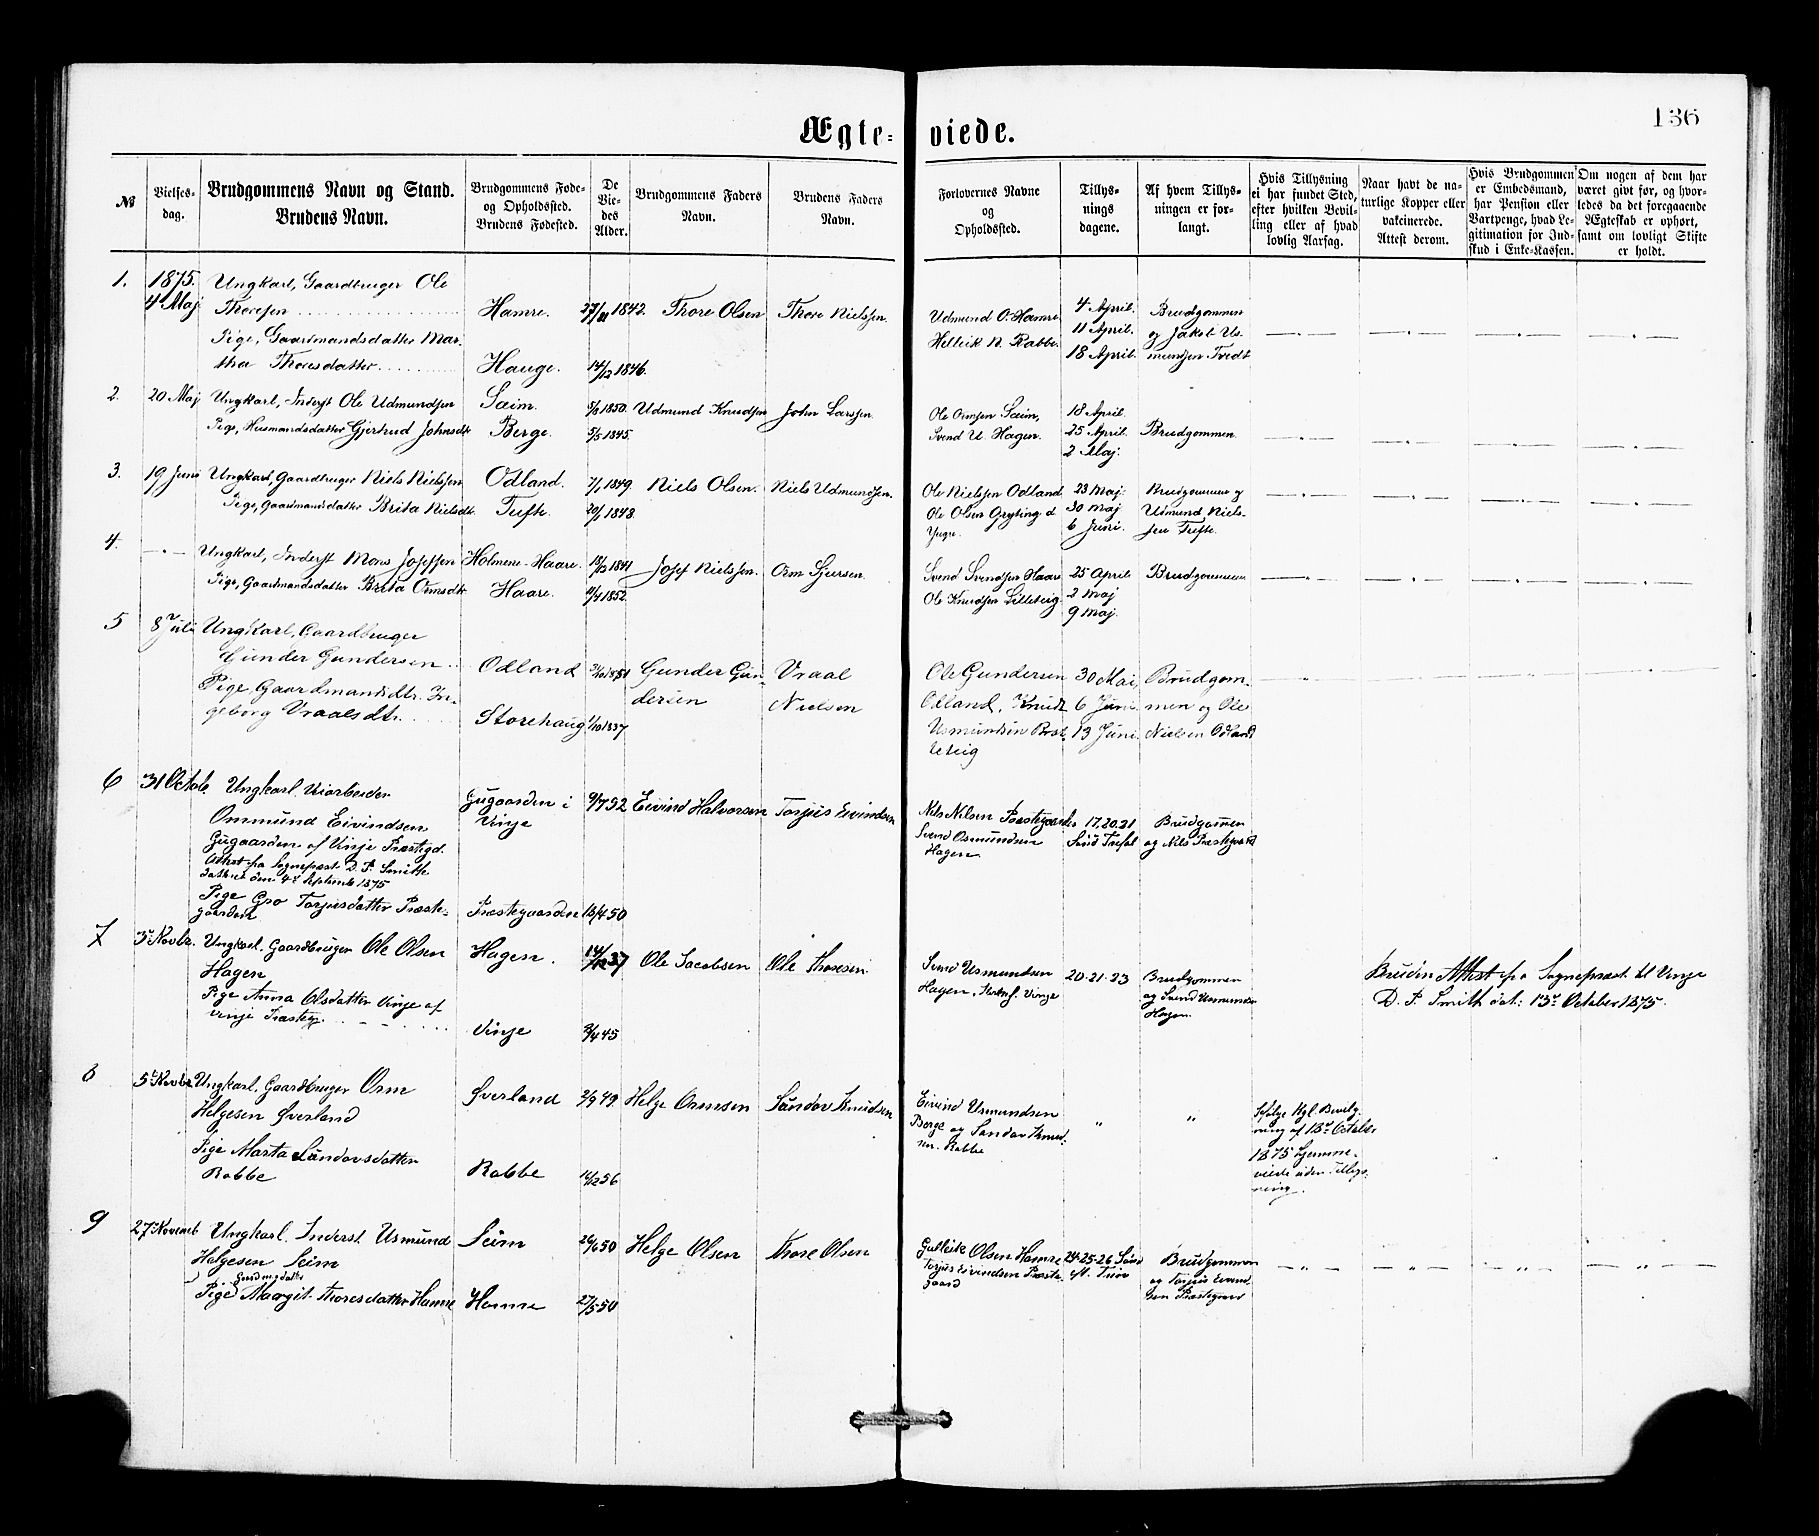 136
Ægte- viede.
№
Vielses-
dag.
Brudgommens Navn og Stand.
Brudens Navn.
Brudgommens Føde-
og Opholdssted.
Brudens Fødested.
De
Vie-
des
Alder.
Brudgommens Faders
Navn.
Brudens Faders
Navn.
Forlovernes Navne
og
Opholdssted.
Tillys-
nings
dagene.
Af hvem Tillys-
ningen er for-
langt.
Hvis Tillysning
ei har fundet Sted,
efter hvilken Bevil-
ling eller af hvad
lovlig Aarsag.
Naar havt de na-
turlige Kopper eller
vakcinerede.
Attest derom.
Hvis Brudgommen
er Embedsmand,
har Pension eller
Vartpenge, hvad Le-
gitimation for Ind-
skud i Enke-Kassen.
Om nogen af dem har
været givt før, og hvor-
ledes da det foregaaende
Ægteskab er ophørt,
samt om lovligt Skifte
er holdt.
1.
1875.
4 Maj
Ungkarl, Gaardbruger Ole
Thoresen
Pige, Gaardmandsdatter Mar-
tha Thoresdatter
Hamre.
Hauge.
27/11 1842.
14/12 1846.
Thore Olsen
Thore Nielssen
Udmund O. Hamre
Helleik N. Rabbe.
4 April.
11 April.
18 April.
Brudgommen
og Jakob Us-
mundsen Tvedt
2.
20 Maj
Ungkarl, Inderst Ole Udmundsen
Pige, Husmandsdatter Gjertrud Johnsdt
Seim.
Berge.
5/8 1850.
5/5 1845.
Udmund Knudsen
John Larssen.
Ole Ormsen Seim,
Svend U. Hagen.
18 April.
25 April.
2 Maj.
Brudgommen
3.
19 Juni
Ungkarl, Gaardbruger Niels Nielssen
Pige, Gaardmandsdatter Brita Nielsdt
Odland.
Tufte.
7/1 1849.
20/1 1848.
Niels Olsen.
Niels Udmundsen.
Ole Nielssen Odland
Ole Olsen Gryting d
Yngre.
23 Maj.
30 Maj
6 Juni.
Brudgommen og
Udmund Niels-
sen Tufte.
4.
Ungkarl, Inderst Mons Josefsen
Pige, Gaardmandsdatter Brita Ormsdt
Holmene - Haare.
Haare.
18/12 1841
11/4 1852.
Josef Nielssen.
Orm Sjursen.
Svend Svendsen Haare
Ole Knudsen Lilleteig.
25 April
2 Maj
9 Maj.
Brudgommen
5
8 Juli
Ungkarl, Gaardbruger
Gunder Gundersen
Pige, Gaardmandsdtr. In-
geborg Vraalsdtr.
Odland
Storehaug
1/10 1837
Gunder Gun-
dersen
Vraal
Nielsen
Ole Gundersen
Odland, Knut
Usmundsen
30 Mai,
6 Juni
13 Juni.
Brudgom-
men og Ole
Nielsen Odland
6
31 Octob.
Ungkarl.
Ommund Eivindsen
Gugaarden af Vinje Præstegd.
Attest fra Sognepræst D. P. Smith
dateret den 4de September 1875
Pige Gro Torjusdatter Præste-
gaarden
Gugaarden i
Vinje
Præstegaarden
9/7 52
13/4 50
Eivind Halvorsen
Torjus Eivindsen
Nils Nilsen Præstegaarden
Svend Osmundsen
Hagen
17. 20. 21
Brudgommen
og Nils Præstegaard
7
3de Novbr.
Ungkarl. Gaardbruger Ole Olsen
Hagen
Pige Anna Olsdatter Vinje af
Vinje Præsteg.
Hagen.
Vinje
2/4 45
Ole Jacobsen
Ole Thoresen
Svend Usmundsen
Hagen, Vinje
20-21-23
Brudgommen
og Svend Usmundsen
Hagen.
Bruden Attest fra Sognepræst til Vinje
D. P. Smith dat: 13de October 1875.
8
5te Novbr.
Ungkarl, Gaardbruger Orm
Helgesen Øverland
Pige Marta Sandovsdatter
Rabbe
Øverland
Rabbe
2/9 49
14/12 56
Helge Ormsen
Sandov Knudsen
Eivind Usmundsen
Berge og Sandov Knud-
sen. Rabbe
"
"
Ifølge Kgl. Bevilg-
ning af 18de October
1875 hjemme-
viede uden Tillys-
ning.
9
27 Novemb
Ungkarl. Inderst. Usmund
Helgesen Seim
Gaardmgdatter
Pige Margit Thoresdatter Hamre
Seim
Hamre
26/6 50
27/5 50
Helge Olsen
Thore Olsen
Gulleik Olsen Hamre
Torjus Eivindsen Præste-
gaard
24-25-26 Sønd
eft. Trin
Brudgommen
og Torjus Eivind-
sen Præstegaard